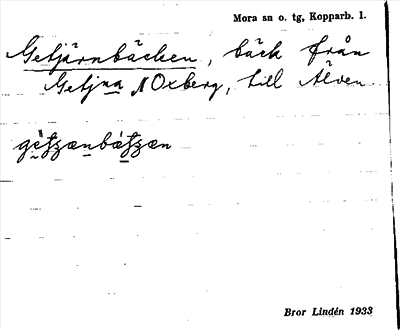 Mora sn o. tg, Kopparb. l.
Getjärnbäcken, bäck från
Getjna N Oxberg, till Älven
Bror Lindén 1933